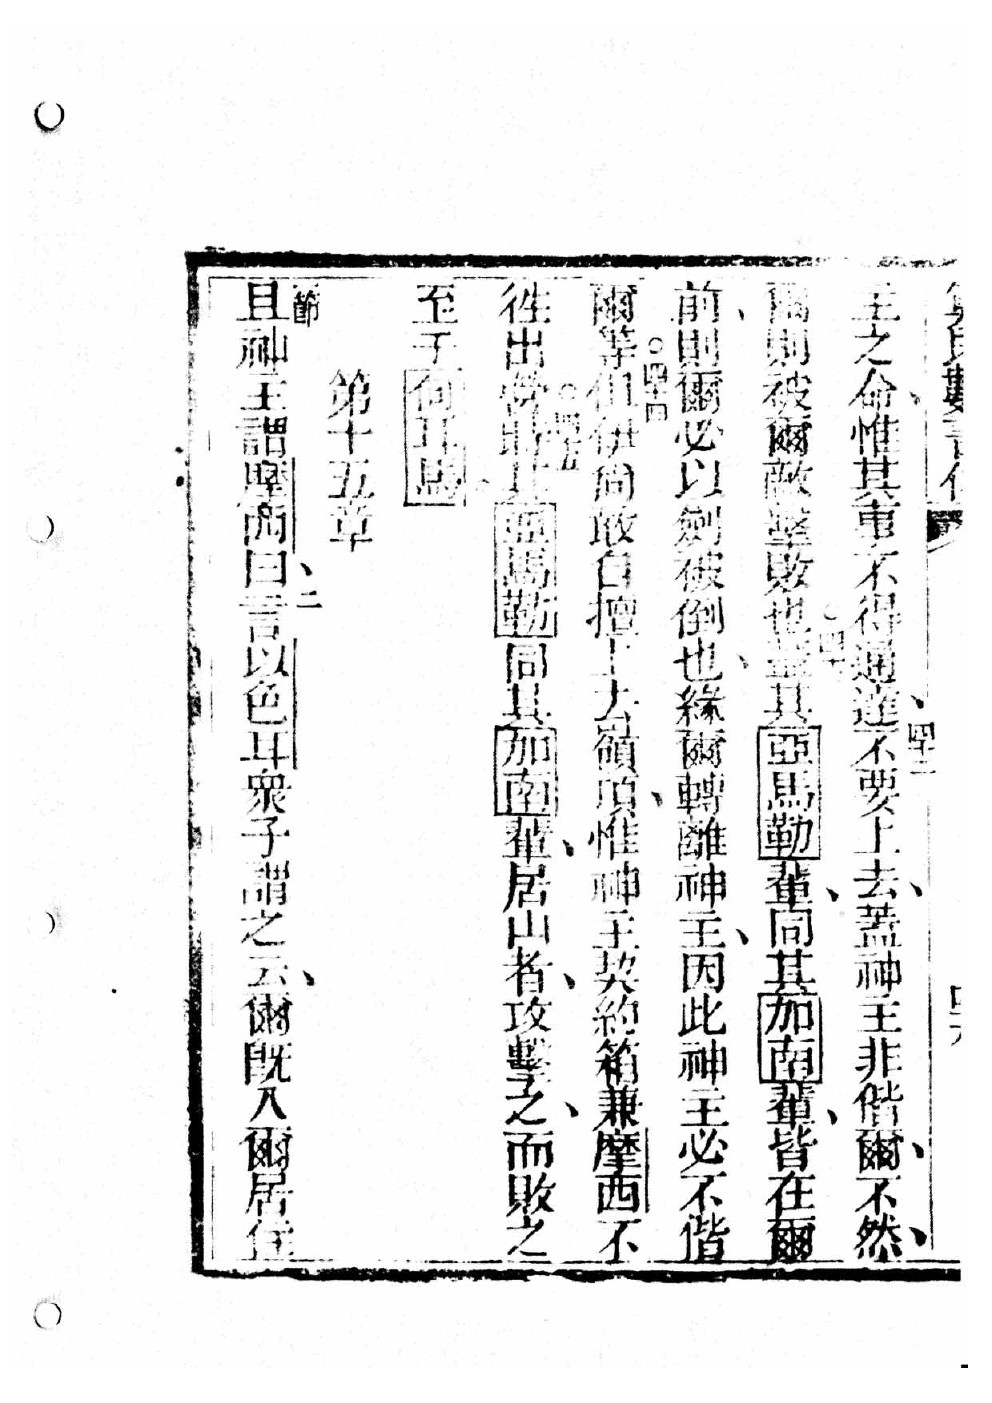 主之命、惟其事不得通達、四十二不要上去、蓋神主非偕爾、不然、
爾則被爾敵擊敗也○四十三蓋其亞馬勒輩、同其加南輩、皆在爾
前、則爾必以劍被倒也、緣爾轉離神主、因此神主必不偕
爾等○四十四但伊尚敢自擅上去嶺頂、惟神主契約箱兼摩西不
徃出營○四十五時其亞馬勒同其加南輩、居山者、攻擊之、而敗之
至于何耳馬
第十五章
節且神主謂摩西曰、二言以色耳衆子謂之云、爾既入爾居住